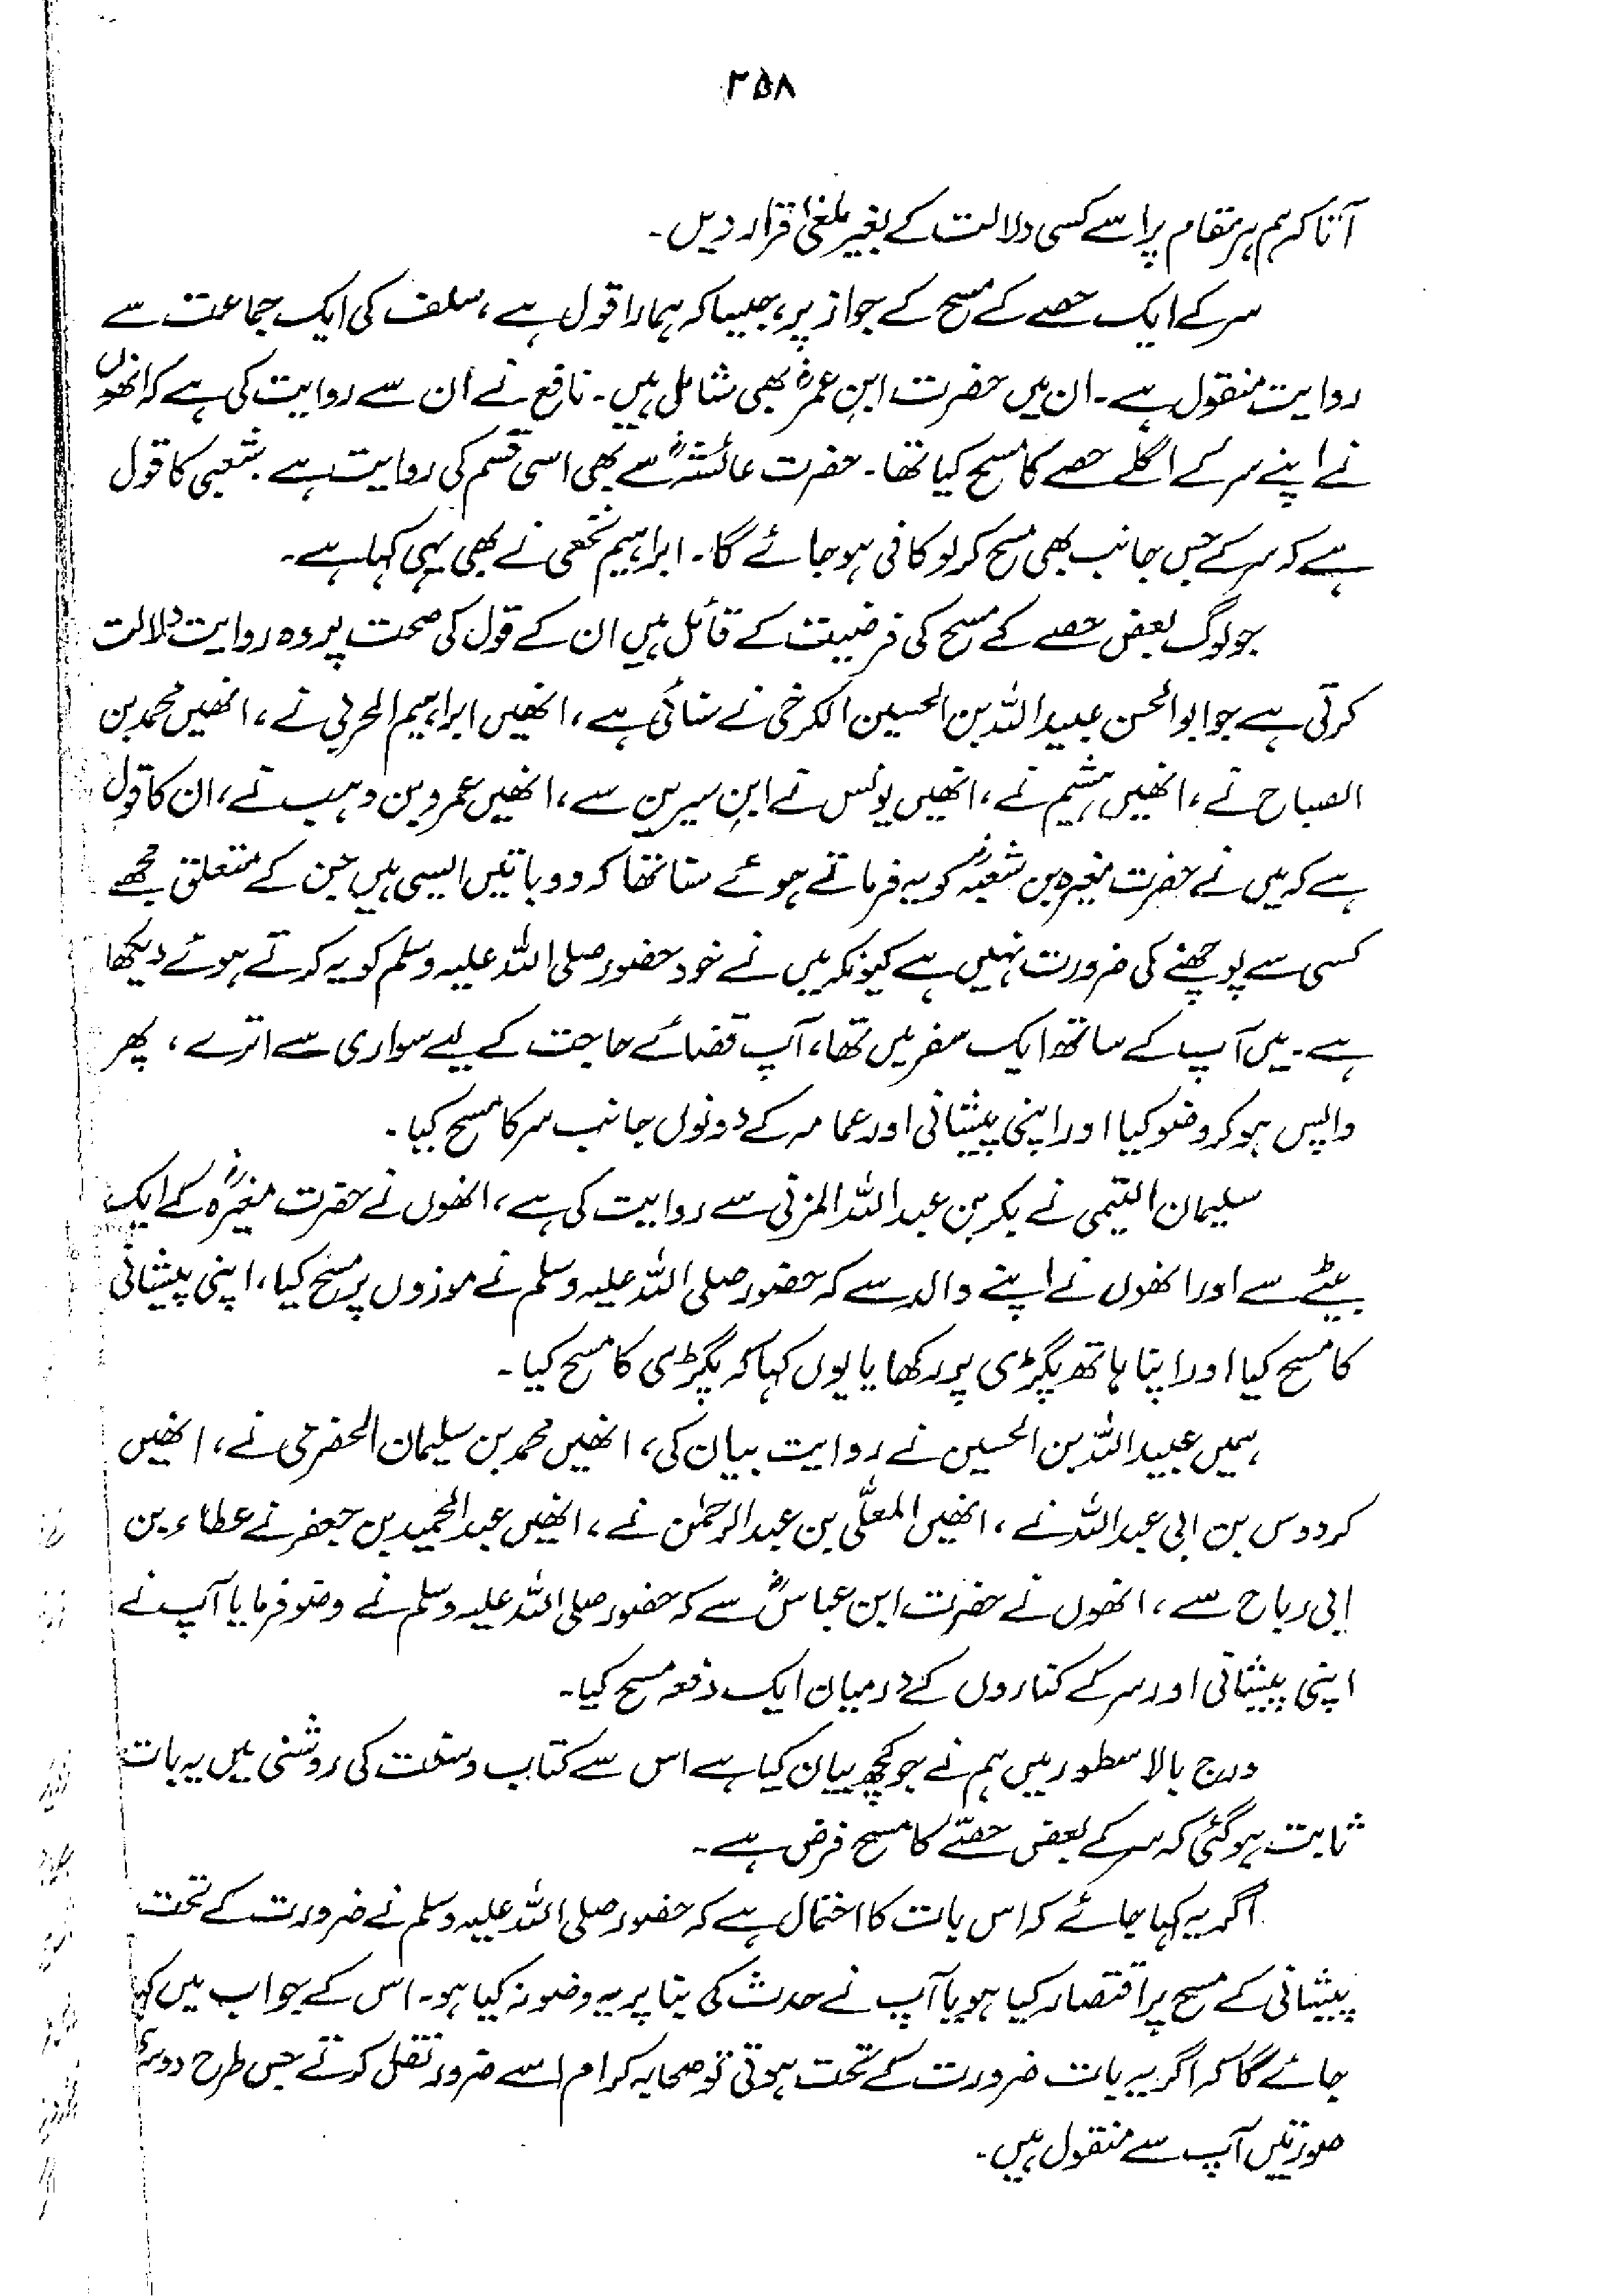 ۲۵۸
آنا کہ ہم ہر مقام پر اسے کسی دلالت کے بغیر ملغیٰ قرار دیں۔
سر کے ایک حصے کے مسح کے جواز پر، جیسا کہ ہمارا قول ہے، سلف کی ایک جماعت سے
روایت منقول ہے۔ ان میں حضرت ابن عمرؓ بھی شامل ہیں۔ نافع نے ان سے روایت کی ہے کہ انھوں
نے اپنے سر کے اگلے حصے کا مسح کیا تھا۔ حضرت عائشہؓ سے بھی اسی قسم کی روایت ہے۔ شعبی کا قول
ہے کہ سر کے جس جانب بھی مسح کر لو کافی ہو جائے گا۔ ابراہیم نخعی نے بھی یہی کہا ہے۔
جو لوگ بعض حصے کے مسح کی فرضیت کے قائل ہیں ان کے قول کی صحت پر وہ روایت دلالت
کرتی ہے جو ابوالحسن عبیداللہ بن الحسین الکرخی نے سنائی ہے، انھیں ابراہیم الحربی نے، انھیں محمد بن
الصباح نے، انھیں ہشیم نے، انھیں یونس نے ابن سیرین سے، انھیں عمرو بن وہب نے، ان کا قول
ہے کہ میں نے حضرت مغیرہ بن شعبہؓ کو یہ فرماتے ہوئے سنا تھا کہ دو باتیں ایسی ہیں جن کے متعلق مجھے
کسی سے پوچھنے کی ضرورت نہیں ہے کیونکہ میں نے خود حضور صلی اللہ علیہ وسلم کو یہ کرتے ہوئے دیکھا
ہے۔ میں آپ کے ساتھ ایک سفر میں تھا، آپ قضائے حاجت کے لیے سواری سے اترے، پھر
واپس ہو کر وضو کیا اور اپنی پیشانی اور عمامہ کے دونوں جانب سر کا مسح کیا۔
سلیمان التیمی نے بکر بن عبداللہ المزنی سے روایت کی ہے، انھوں نے حضرت مغیرہؓ کے ایک
بیٹے سے اور انھوں نے اپنے والد سے کہ حضور صلی اللہ علیہ وسلم نے موزوں پر مسح کیا، اپنی پیشانی
کا مسح کیا اور اپنا ہاتھ پگڑی پر رکھا یا یوں کہا کہ پگڑی کا مسح کیا۔
ہمیں عبیداللہ بن الحسین نے روایت بیان کی، انھیں محمد بن سلیمان الحضرمی نے، انھیں
کردوس بن ابی عبداللہ نے، انھیں المعلّٰی بن عبدالرحمٰن نے، انھیں عبدالحمید بن جعفر نے عطاء بن
ابی رباح سے، انھوں نے حضرت ابن عباسؓ سے کہ حضور صلی اللہ علیہ وسلم نے وضو فرمایا آپ نے
اپنی پیشانی اور سر کے کناروں کے درمیان ایک دفعہ مسح کیا۔
درج بالا سطور میں ہم نے جو کچھ بیان کیا ہے اس سے کتاب و سنت کی روشنی میں یہ بات
ثابت ہو گئی کہ سر کے بعض حصّے کا مسح فرض ہے۔
اگر یہ کہا جائے کہ اس بات کا احتمال ہے کہ حضور صلی اللہ علیہ وسلم نے ضرورت کے تحت
پیشانی کے مسح پر اقتصار کیا ہو یا آپ نے حدث کی بنا پر یہ وضو نہ کیا ہو۔ اس کے جواب میں کہا
جائے گا کہ اگر یہ بات ضرورت کے تحت ہوتی تو صحابہ کرام اسے ضرور نقل کرتے جس طرح دوسری
صورتیں آپ سے منقول ہیں۔